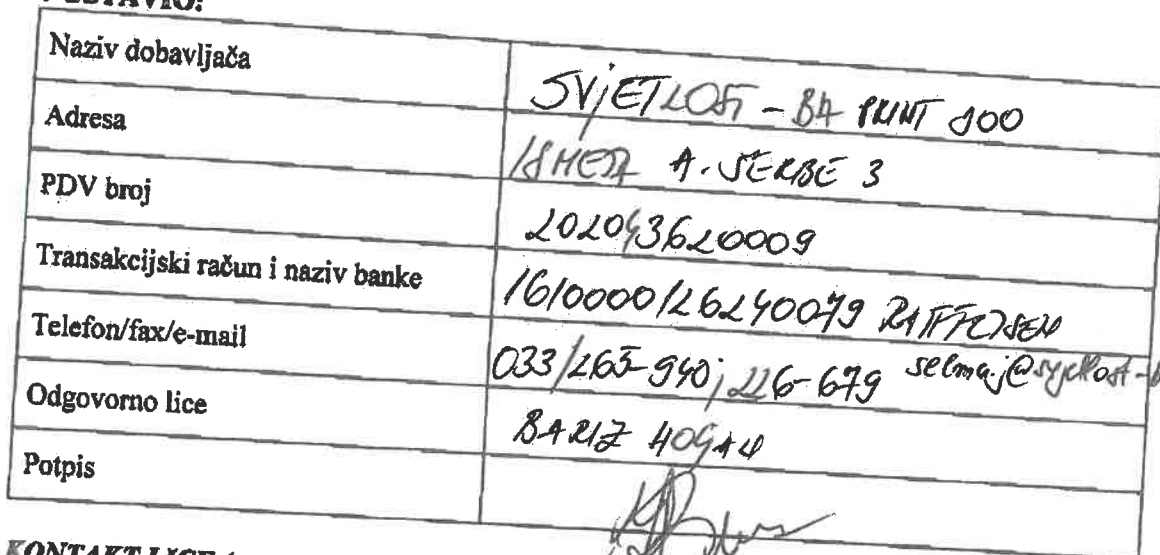 Naziv dobavljača SVJETLOST - BA PRINT DOO
Adresa ISMETA A. ŠERBE 3
PDV broj 202043620009
Transakcijski račun i naziv banke 1610000126240079 RAIFFEISEN
Telefon/fax/e-mail 033/265-940; 226-679
Odgovorno lice
Potpis
KONTAKT LICE